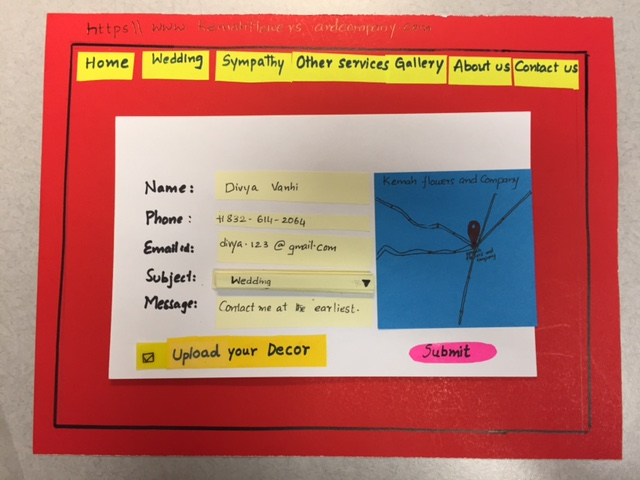 https// www Kemahflowers andcompany.com
Home Wedding Sympathy Other services Gallery About us Contact us
Kemah flowers and Company
Name: Divya Vanhi
Phone: +1 832-614-2064
Email id: divya.123 @ gmail.com
Subject: Wedding
Message: Contact me at the earliest.
Upload your Decor
Submit